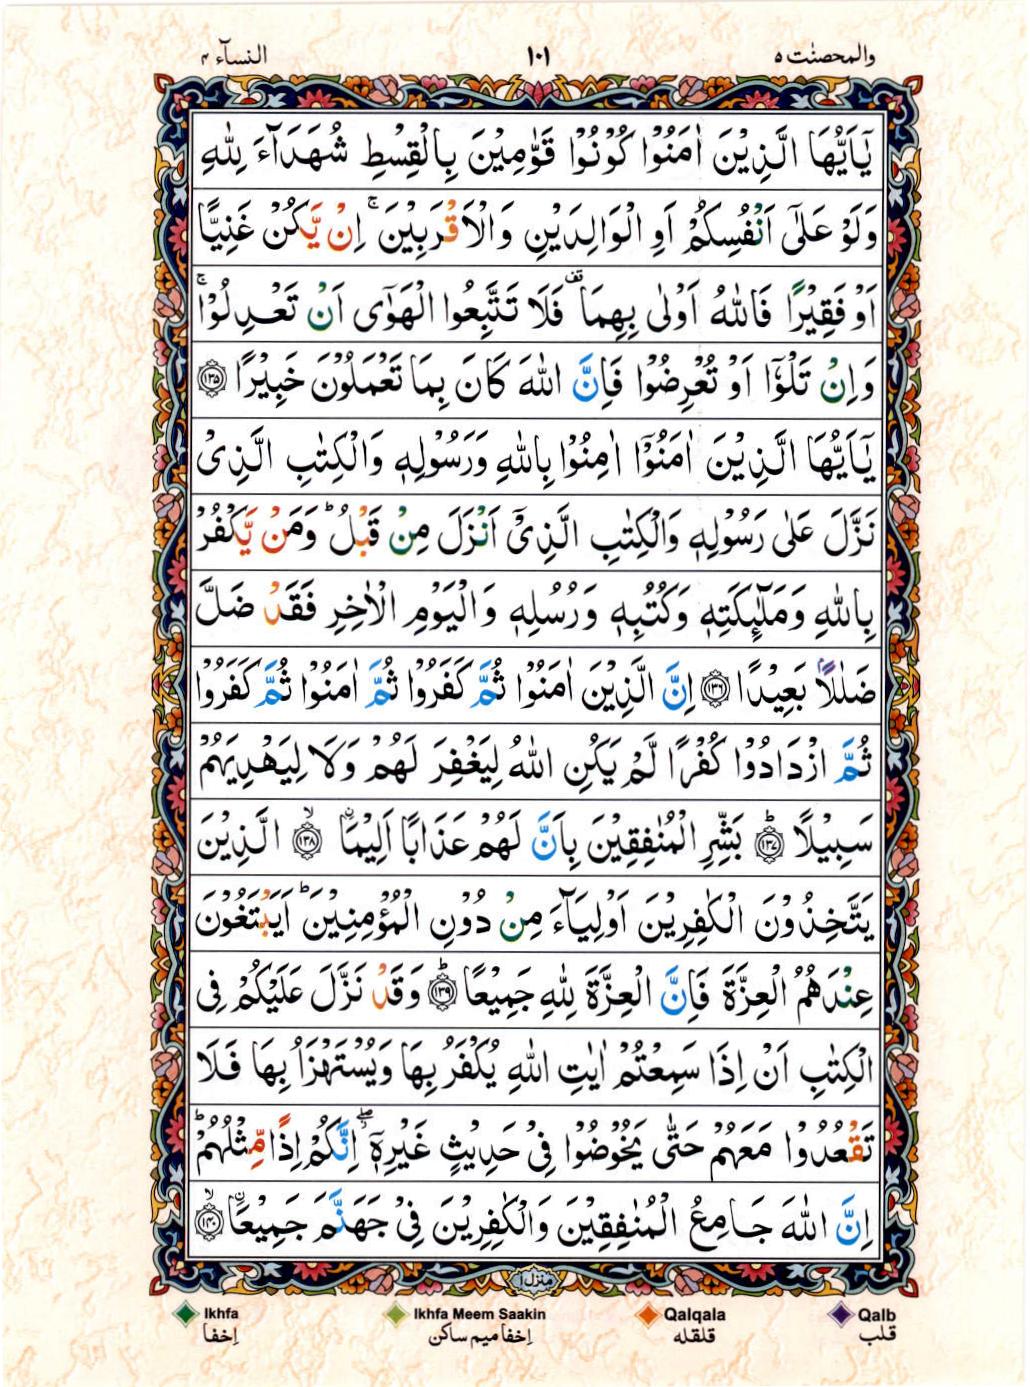 والمحصنٰت ۵ ۱۰۱ النسآء ۴
يٰۤاَيُّهَا الَّذِيْنَ اٰمَنُوْا كُوْنُوْا قَوّٰمِيْنَ بِالْقِسْطِ شُهَدَآءَ لِلّٰهِ
وَلَوْ عَلٰۤى اَنْفُسِكُمْ اَوِ الْوَالِدَيْنِ وَالْاَقْرَبِيْنَ ۚ اِنْ يَّكُنْ غَنِيًّا
اَوْ فَقِيْرًا فَاللّٰهُ اَوْلٰى بِهِمَا ۫ فَلَا تَتَّبِعُوا الْهَوٰٓى اَنْ تَعْدِلُوْا ۚ
وَاِنْ تَلْوٗۤا اَوْ تُعْرِضُوْا فَاِنَّ اللّٰهَ كَانَ بِمَا تَعْمَلُوْنَ خَبِيْرًا ﴿۱۳۵﴾
يٰۤاَيُّهَا الَّذِيْنَ اٰمَنُوْۤا اٰمِنُوْا بِاللّٰهِ وَرَسُوْلِهٖ وَالْكِتٰبِ الَّذِىْ
نَزَّلَ عَلٰى رَسُوْلِهٖ وَالْكِتٰبِ الَّذِىْۤ اَنْزَلَ مِنْ قَبْلُ ؕ وَمَنْ يَّكْفُرْ
بِاللّٰهِ وَمَلٰٓئِكَتِهٖ وَكُتُبِهٖ وَرُسُلِهٖ وَالْيَوْمِ الْاٰخِرِ فَقَدْ ضَلَّ
ضَلٰلًاۢ بَعِيْدًا ﴿۱۳۶﴾ اِنَّ الَّذِيْنَ اٰمَنُوْا ثُمَّ كَفَرُوْا ثُمَّ اٰمَنُوْا ثُمَّ كَفَرُوْا
ثُمَّ ازْدَادُوْا كُفْرًا لَّمْ يَكُنِ اللّٰهُ لِيَغْفِرَ لَهُمْ وَلَا لِيَهْدِيَهُمْ
سَبِيْلًا ؕ﴿۱۳۷﴾ بَشِّرِ الْمُنٰفِقِيْنَ بِاَنَّ لَهُمْ عَذَابًا اَلِيْمَاۨ ۙ﴿۱۳۸﴾ الَّذِيْنَ
يَتَّخِذُوْنَ الْكٰفِرِيْنَ اَوْلِيَآءَ مِنْ دُوْنِ الْمُؤْمِنِيْنَ ؕ اَيَبْتَغُوْنَ
عِنْدَهُمُ الْعِزَّةَ فَاِنَّ الْعِزَّةَ لِلّٰهِ جَمِيْعًا ؕ﴿۱۳۹﴾ وَقَدْ نَزَّلَ عَلَيْكُمْ فِى
الْكِتٰبِ اَنْ اِذَا سَمِعْتُمْ اٰيٰتِ اللّٰهِ يُكْفَرُ بِهَا وَيُسْتَهْزَاُ بِهَا فَلَا
تَقْعُدُوْا مَعَهُمْ حَتّٰى يَخُوْضُوْا فِىْ حَدِيْثٍ غَيْرِهٖۤ ۖ اِنَّكُمْ اِذًا مِّثْلُهُمْ ؕ
اِنَّ اللّٰهَ جَامِعُ الْمُنٰفِقِيْنَ وَالْكٰفِرِيْنَ فِىْ جَهَنَّمَ جَمِيْعَاۨ ۙ﴿۱۴۰﴾
منزل ۱
Ikhfa Ikhfa Meem Saakin Qalqala Qalb
اِخفا اِخفا میم ساکن قلقله قلب